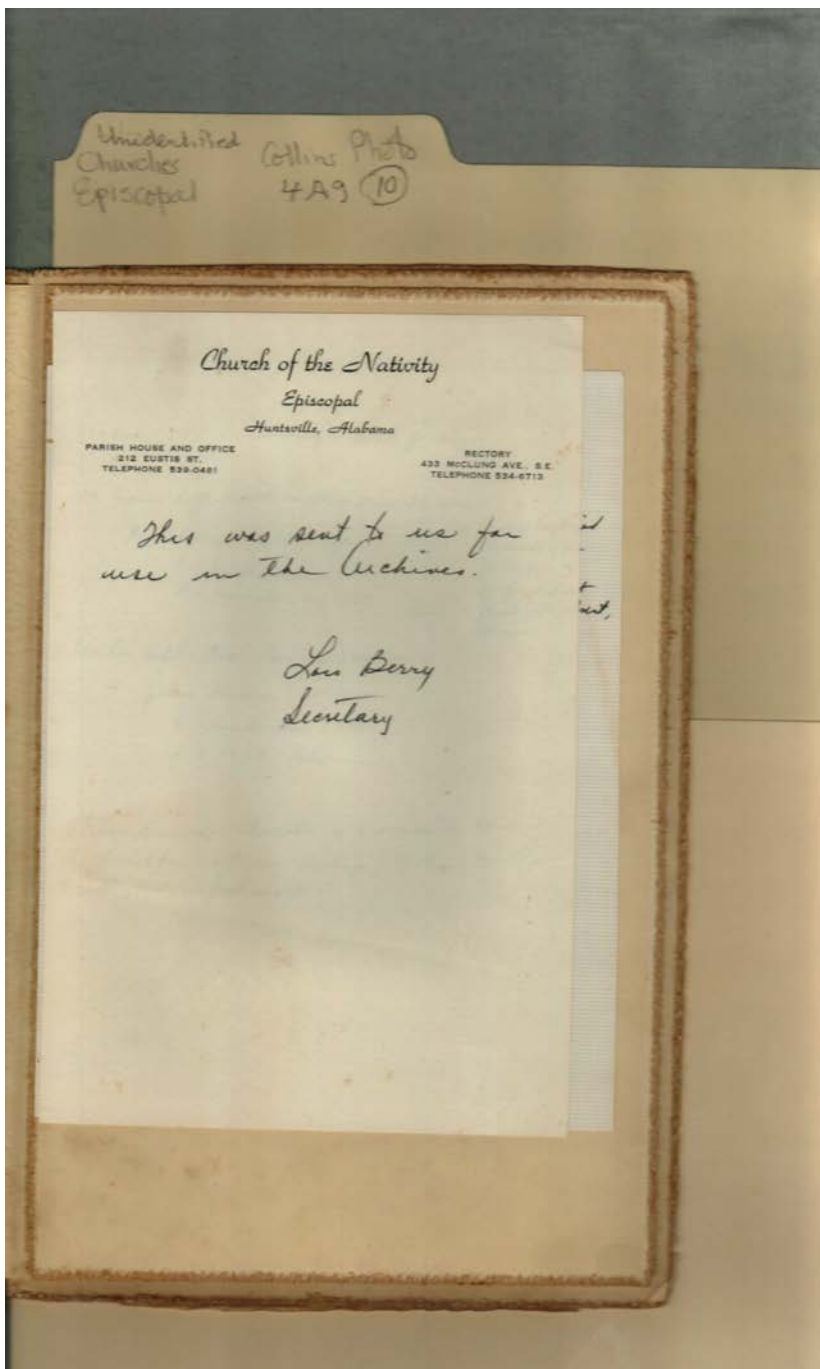 Unidentified
Churches
Episcopal
Collins Photo
4A9 10
Church of the Nativity
Episcopal
Huntsville, Alabama
PARISH HOUSE AND OFFICE
212 EUSTIS ST.
TELEPHONE 539-0481
RECTORY
433 McCLUNG AVE., S.E.
TELEPHONE 534-6713
This was sent to us for
use in the Archives.
Lois Berry
Secretary